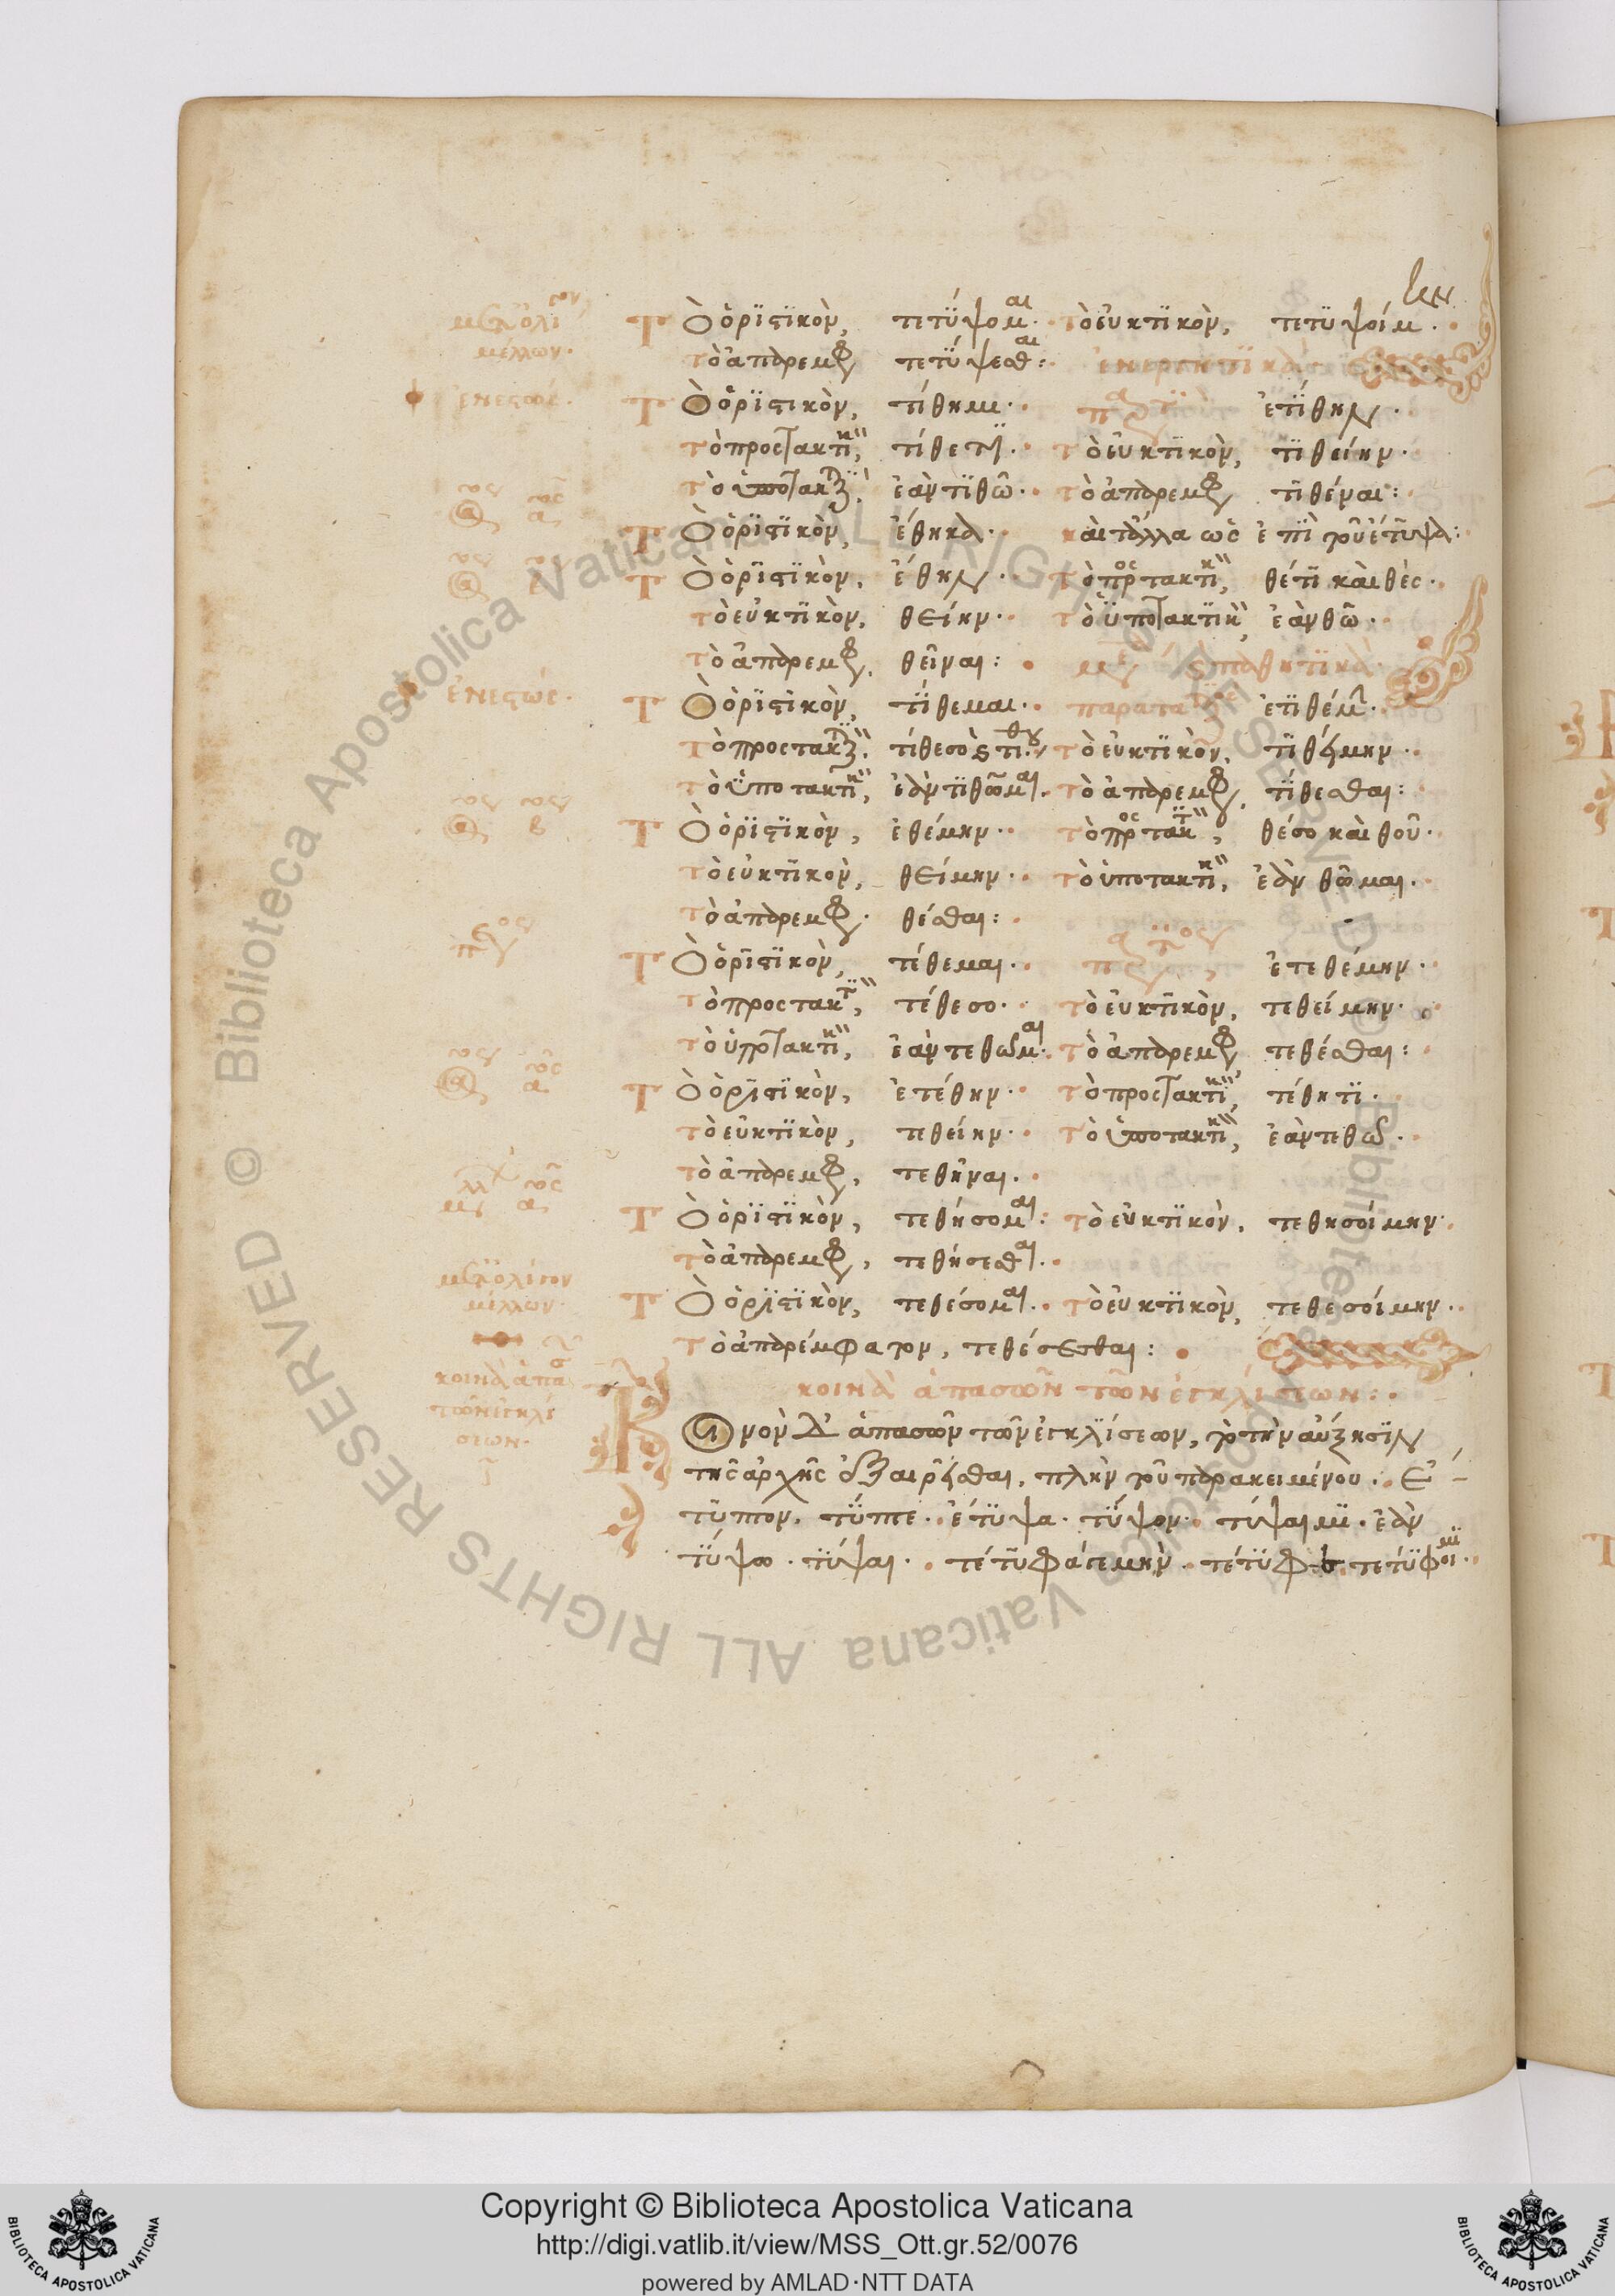 μετ' ὀλίγον Τὸ ὁριστικὸν, τετύψομαι· τὸ εὐκτικὸν, τετυψοίμην·
μέλλων· τὸ ἀπαρεμφ τετύψεσθαι: ἐνεργητικά
ἐνεστώς· Τὸ ὁριστικὸν, τίθημι· ἐτίθην·
τὸ προστακτικ, τίθετι· τὸ εὐκτικὸν, τιθείην·
τὸ ὑποτακτικ, ἐὰν τιθῶ· τὸ ἀπαρεμφ τιθέναι:
Τὸ ὁριστικὸν, ἔθηκα· καὶ τἄλλα ὡς ἐπὶ τοῦ ἔτυψα:
Τὸ ὁριστικὸν, ἔθην· τὸ προστακτικ, θέτι καὶ θὲς·
τὸ εὐκτικὸν, θείην· τὸ ὑποτακτικ, ἐὰν θῶ·
τὸ ἀπαρεμφ, θεῖναι: παθητικά
ἐνεστώς· Τὸ ὁριστικὸν, τίθεμαι· παρατατικὸς ἐτιθέμην·
τὸ προστακτικ, τίθεσο καὶ τίθου τὸ εὐκτικὸν, τιθείμην·
τὸ ὑποτακτικ, ἐὰν τιθῶμαι· τὸ ἀπαρεμφ, τίθεσθαι:
Τὸ ὁριστικὸν, ἐθέμην· τὸ προστακτ, θέσο καὶ θοῦ·
τὸ εὐκτικὸν, θείμην· τὸ ὑποτακτικ, ἐὰν θῶμαι·
τὸ ἀπαρεμφ· θέσθαι:
Τὸ ὁριστικὸν, τέθεμαι· ἐτεθέμην·
τὸ προστακτ, τέθεσο· τὸ εὐκτικὸν, τεθείμην·
τὸ ὑποτακτικ, ἐὰν τεθῶμαι· τὸ ἀπαρεμφ τεθέσθαι:
Τὸ ὁριστικὸν, ἐτέθην· τὸ προστακτικ, τέθητι·
τὸ εὐκτικὸν, τεθείην· τὸ ὑποτακτικ, ἐὰν τεθῶ·
τὸ ἀπαρεμφ, τεθῆναι·
Τὸ ὁριστικὸν, τεθήσομαι: τὸ εὐκτικὸν, τεθησοίμην·
τὸ ἀπαρεμφ, τεθήσεσθαι·
μετ' ὀλίγον
μέλλων· Τὸ ὁριστικὸν, τεθέσομαι· τὸ εὐκτικὸν, τεθεσοίμην·
τὸ ἀπαρέμφατον, τεθέσεσθαι:
κοινὰ ἁπασῶν τῶν ἐγκλίσεων: κοινὰ ἁπασῶν τῶν ἐγκλίσεων·
Κοινὸν δ' ἁπασῶν τῶν ἐγκλίσεων, τὸ τὴν αὔξησιν
τῆς ἀρχῆς ἐξαιρεῖσθαι, πλὴν τοῦ παρακειμένου· ἔ-
τυπτον, τύπτε· ἔτυψα· τύψον· τύψαιμι· ἐὰν
τύψω· τύψαι· τέτυφά γε μὴν· τέτυφε· τετύφοιμι·
Copyright © Biblioteca Apostolica Vaticana
http://digi.vatlib.it/view/MSS_Ott.gr.52/0076
powered by AMLAD·NTT DATA